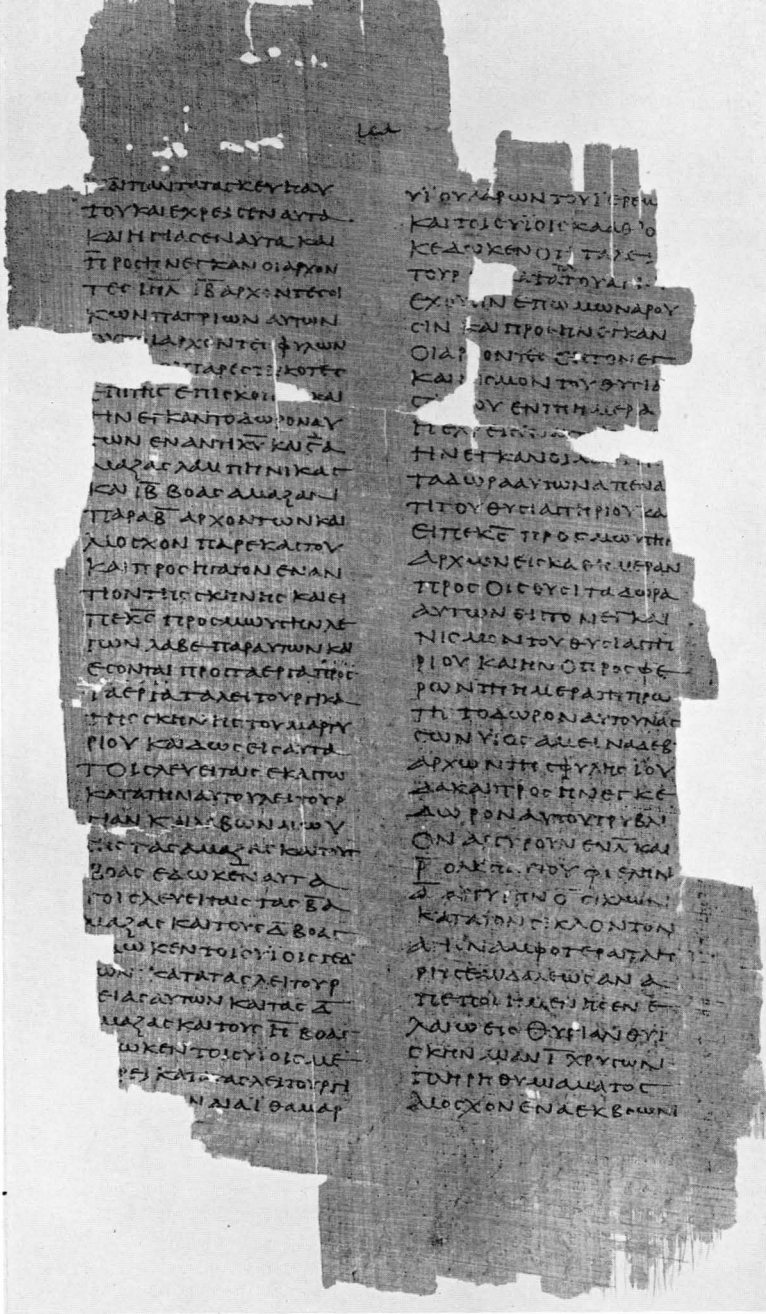 ΑΠΑΝΤΑ ΤΑ ϹΚΕΥΗ ΑΥ
ΤΟΥ ΚΑΙ ΕΧΡΕΙϹΕΝ ΑΥΤΑ
ΚΑΙ ΗΓΙΑϹΕΝ ΑΥΤΑ ΚΑΙ
ΠΡΟϹΗΝΕΓΚΑΝ ΟΙ ΑΡΧΟΝ
ΤΕϹ ΙΗΛ ΙΒ ΑΡΧΟΝΤΕϹ ΟΙ
ΚΩΝ ΠΑΤΡΙΩΝ ΑΥΤΩΝ
ΑΡΧΟΝΤΕϹ ΦΥΛΩΝ
ΠΑΡΕϹΤΗΚΟΤΕϹ
ΕΠΙ ΤΗϹ ΕΠΙϹΚΟΠ ΚΑΙ
ΗΝΕΓΚΑΝ ΤΟ ΔΩΡΟΝ ΑΥ
ΤΩΝ ΕΝΑΝΤΙ ΚΥ ΚΑΙ Ϛ Α
ΜΑΞΑϹ ΛΑΜΠΗΝΙΚΑϹ
ΚΑΙ ΙΒ ΒΟΑϹ ΑΜΑΞΑΝ
ΠΑΡΑ Β ΑΡΧΟΝΤΩΝ ΚΑΙ
ΜΟϹΧΟΝ ΠΑΡ ΕΚΑϹΤΟΥ
ΚΑΙ ΠΡΟϹΗΓΑΓΟΝ ΕΝΑΝ
ΤΙΟΝ ΤΗϹ ϹΚΗΝΗϹ ΚΑΙ ΕΙ
ΠΕ ΚϹ ΠΡΟϹ ΜΩΥϹΗΝ ΛΕ
ΓΩΝ ΛΑΒΕ ΠΑΡ ΑΥΤΩΝ ΚΑΙ
ΕϹΟΝΤΑΙ ΠΡΟϹ ΤΑ ΕΡΓΑ ΠΡΟϹ
ΤΑ ΕΡΓΑ ΤΑ ΛΕΙΤΟΥΡΓΙΚΑ
ΤΗϹ ϹΚΗΝΗϹ ΤΟΥ ΜΑΡΤΥ
ΡΙΟΥ ΚΑΙ ΔΩϹΕΙϹ ΑΥΤΑ
ΤΟΙϹ ΛΕΥΕΙΤΑΙϹ ΕΚΑϹΤΩ
ΚΑΤΑ ΤΗΝ ΑΥΤΟΥ ΛΕΙΤΟΥΡ
ΓΙΑΝ ΚΑΙ ΛΑΒΩΝ ΜΩΥ
ϹΗϹ ΤΑϹ ΑΜΑΞΑϹ ΚΑΙ ΤΟΥϹ
ΒΟΑϹ ΕΔΩΚΕΝ ΑΥΤΑ
ΤΟΙϹ ΛΕΥΕΙΤΑΙϹ ΤΑϹ Β Α
ΜΑΞΑϹ ΚΑΙ ΤΟΥϹ Δ ΒΟΑϹ
ΔΩΚΕΝ ΤΟΙϹ ΥΙΟΙϹ ΓΕΔ
ΩΝ ΚΑΤΑ ΤΑϹ ΛΕΙΤΟΥΡ
ΓΕΙΑϹ ΑΥΤΩΝ ΚΑΙ ΤΑϹ Δ
ΜΑΞΑϹ ΚΑΙ ΤΟΥϹ Η ΒΟΑϹ
ΩΚΕΝ ΤΟΙϹ ΥΙΟΙϹ ΜΕ
ΡΕΙ ΚΑΤΑ ΤΑϹ ΛΕΙΤΟΥΡΓΙ
Ν ΔΙΑ ΙΘΑΜΑΡ
ΥΙΟΥ ΑΑΡΩΝ ΤΟΥ ΙΕΡΕΩ
ΚΑΙ ΤΟΙϹ ΥΙΟΙϹ ΚΑΑΘ Ο
Κ ΕΔΩΚΕΝ ΟΤΙ ΤΑ ΛΕΙ
ΤΟΥΡ ΑΤΑ ΤΟΥ ΑΓΙ
ΕΧΟΥϹΙΝ ΕΠ ΩΜΩΝ ΑΡΟΥ
ϹΙΝ ΚΑΙ ΠΡΟϹΗΝΕΓΚΑΝ
ΟΙ ΑΡΧΟΝΤΕϹ ΕΙϹ ΤΟΝ ΕΓ
ΚΑΙΝΙϹΜΟΝ ΤΟΥ ΘΥϹΙΑ
ΟΥ ΕΝ ΤΗ ΗΜΕΡΑ
ΗΝΕΓΚΑΝ ΟΙ Α
ΤΑ ΔΩΡΑ ΑΥΤΩΝ ΑΠΕΝΑ
ΤΙ ΤΟΥ ΘΥϹΙΑϹΤΗΡΙΟΥ ΚΑ
ΕΙΠΕ ΚϹ ΠΡΟϹ ΜΩΥϹΗ
ΑΡΧΩΝ ΕΙϹ ΚΑΘ ΗΜΕΡΑΝ
ΠΡΟϹΟΙϹΟΥϹΙ ΤΑ ΔΩΡΑ
ΑΥΤΩΝ ΕΙϹ ΤΟΝ ΕΓΚΑΙ
ΝΙϹΜΟΝ ΤΟΥ ΘΥϹΙΑϹΤΗ
ΡΙΟΥ ΚΑΙ ΗΝ Ο ΠΡΟϹΦΕ
ΡΩΝ ΤΗ ΗΜΕΡΑ ΤΗ ΠΡΩ
ΤΗ ΤΟ ΔΩΡΟΝ ΑΥΤΟΥ ΝΑϹ
ϹΩΝ ΥΙΟϹ ΑΜΕΙΝΑΔΑΒ
ΑΡΧΩΝ ΤΗϹ ΦΥΛΗϹ ΙΟΥ
ΔΑ ΚΑΙ ΠΡΟϹΗΝΕΓΚΕ
ΔΩΡΟΝ ΑΥΤΟΥ ΤΡΥΒΛΙ
ΟΝ ΑΡΓΥΡΟΥΝ ΕΝ ΚΑΙ
Ρ ΟΛΚΗ ΦΙΑΛΗΝ
Α ΑΡΓΥΡΗΝ Ο ϹΙΚΛΩΝ
ΚΑΤΑ ΤΟΝ ϹΙΚΛΟΝ ΤΟΝ
ΑΓΙΟΝ ΑΜΦΟΤΕΡΑ ΠΛΗ
ΡΗ ϹΕΜΙΔΑΛΕΩϹ ΑΝΑ
ΠΕΠΟΙΗΜΕΝΗϹ ΕΝ Ε
ΛΑΙΩ ΕΙϹ ΘΥϹΙΑΝ ΘΥΙ
ϹΚΗΝ ΜΙΑΝ Ι ΧΡΥϹΩΝ
ΠΛΗΡΗ ΘΥΜΙΑΜΑΤΟϹ
ΜΟϹΧΟΝ ΕΝΑ ΕΚ ΒΟΩΝ